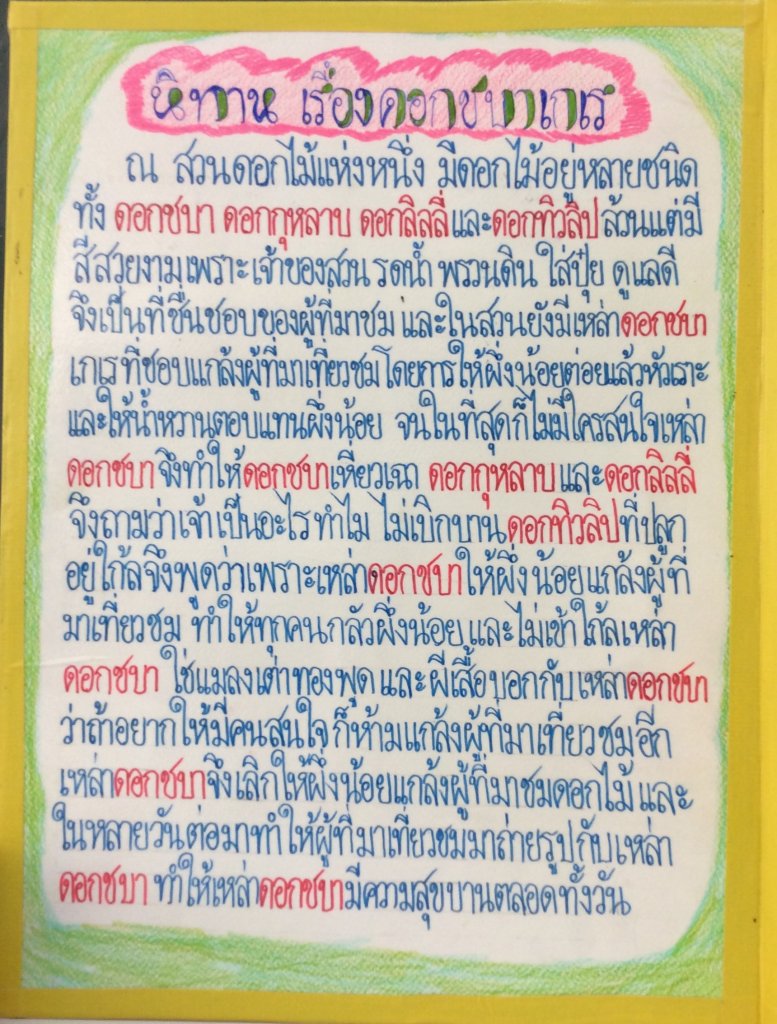 นิทาน เรื่องดอกชบาเกเร
ณ สวนดอกไม้แห่งหนึ่ง มีดอกไม้อยู่หลายชนิด
ทั้ง ดอกชบา ดอกกุหลาบ ดอกลิลลี่และดอกทิวลิป ล้วนแต่มี
สีสวยงามเพราะเจ้าของสวน รดน้ำ พรวนดิน ใส่ปุ๋ย ดูแลดี
จึงเป็นที่ชื่นชอบของผู้ที่มาชม และในสวนยังมีเหล่าดอกชบา
เกเรที่ชอบแกล้งผู้ที่มาเที่ยวชมโดยการให้ผึ่งน้อยต่อยแล้วหัวเราะ
และให้น้ำหวานตอบแทนผึ่งน้อย จนในที่สุดก็ไม่มีใครสนใจเหล่า
ดอกชบา จึงทำให้ดอกชบาเหี่ยวเฉา ดอกกุหลาบ และดอกลิลลี่
จึงถามว่าเจ้าเป็นอะไรทำไม ไม่เบิกบานดอกทิวลิปที่ปลูก
อยู่ใก้ลจึงพูดว่าเพราะเหล่าดอกชบาให้ผึ่งน้อยแกล้งผู้ที่
มาเที่ยวชม ทำให้ทุกคนกลัวผึ่งน้อยและไม่เข้าใก้ลเหล่า
ดอกชบา ใช่แมลงเต่าทองพูด และผีเสื้อบอกกับเหล่าดอกชบา
ว่าถ้าอยากให้มีคนสนใจ ก็ห้ามแกล้งผู้ที่มาเที่ยวชมอีก
เหล่าดอกชบาจึงเลิกให้ผึ่งน้อยแกล้งผู้ที่มาชมดอกไม้และ
ในหลายวันต่อมาทำให้ผู้ที่มาเที่ยวชมมาถ่ายรูปกับเหล่า
ดอกชบา ทำให้เหล่าดอกชบามีความสุขบานตลอดทั้งวัน